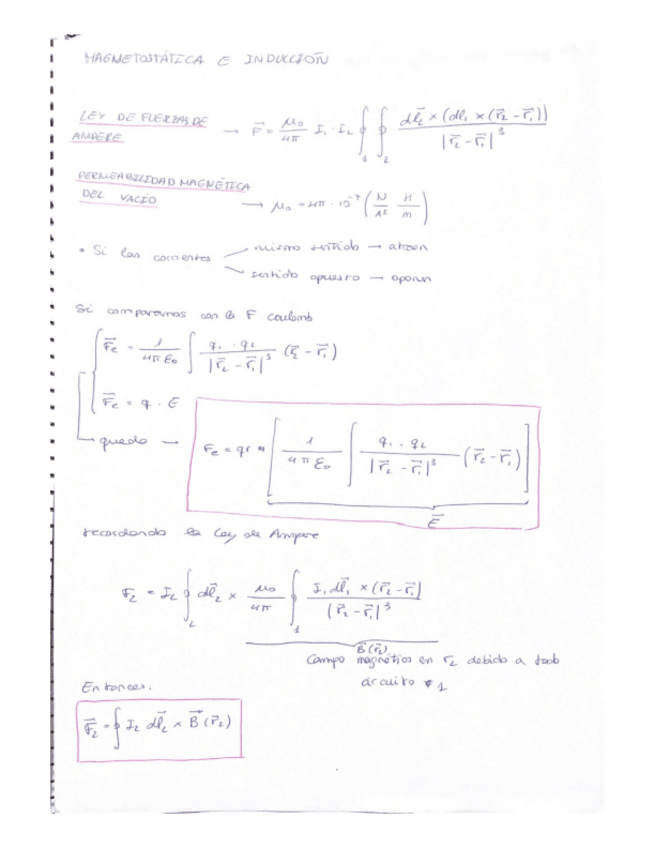 MAGNETOSTÁTICA E INDUCCIÓN
LEY DE FUERZAS DE AMPERE → F⃗ = μ₀/4π I₁ · I₂ ∮₁ ∮₂ dl⃗₂ × (dl⃗₁ × (r⃗₂ − r⃗₁)) / |r⃗₂ − r⃗₁|³
PERMEABILIDAD MAGNÉTICA
DEL VACÍO → μ₀ = 4π · 10⁻⁷ (N/A² H/m)
• Si las corrientes
mismo sentido → atraen
sentido opuesto →
Si comparamos con la F Coulomb
F⃗e = 1/4πε₀ ∫ q₁ · q₂ / |r⃗₂ − r⃗₁|³ (r⃗₂ − r⃗₁)
F⃗e = q · E
queda → Fe = [ 1/4πε₀ ∫ q₁ · q₂ / |r⃗₂ − r⃗₁|³ (r⃗₂ − r⃗₁) ]
E⃗
recordando la Ley de Ampere
F₂ = I₂ ∮₂ dl⃗₂ × μ₀/4π ∮₁ I₁ dl⃗₁ × (r⃗₂ − r⃗₁) / |r⃗₂ − r⃗₁|³
B⃗(r⃗₂)
Campo magnético en r₂ debido a todo
circuito 1
Entonces:
F⃗₂ = ∮ I₂ dl⃗₂ × B⃗(r⃗₂)